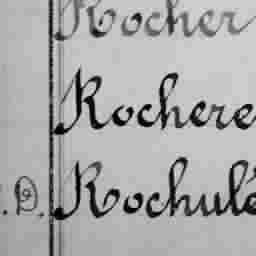 Rocher
Rochere
.D. Rochulé